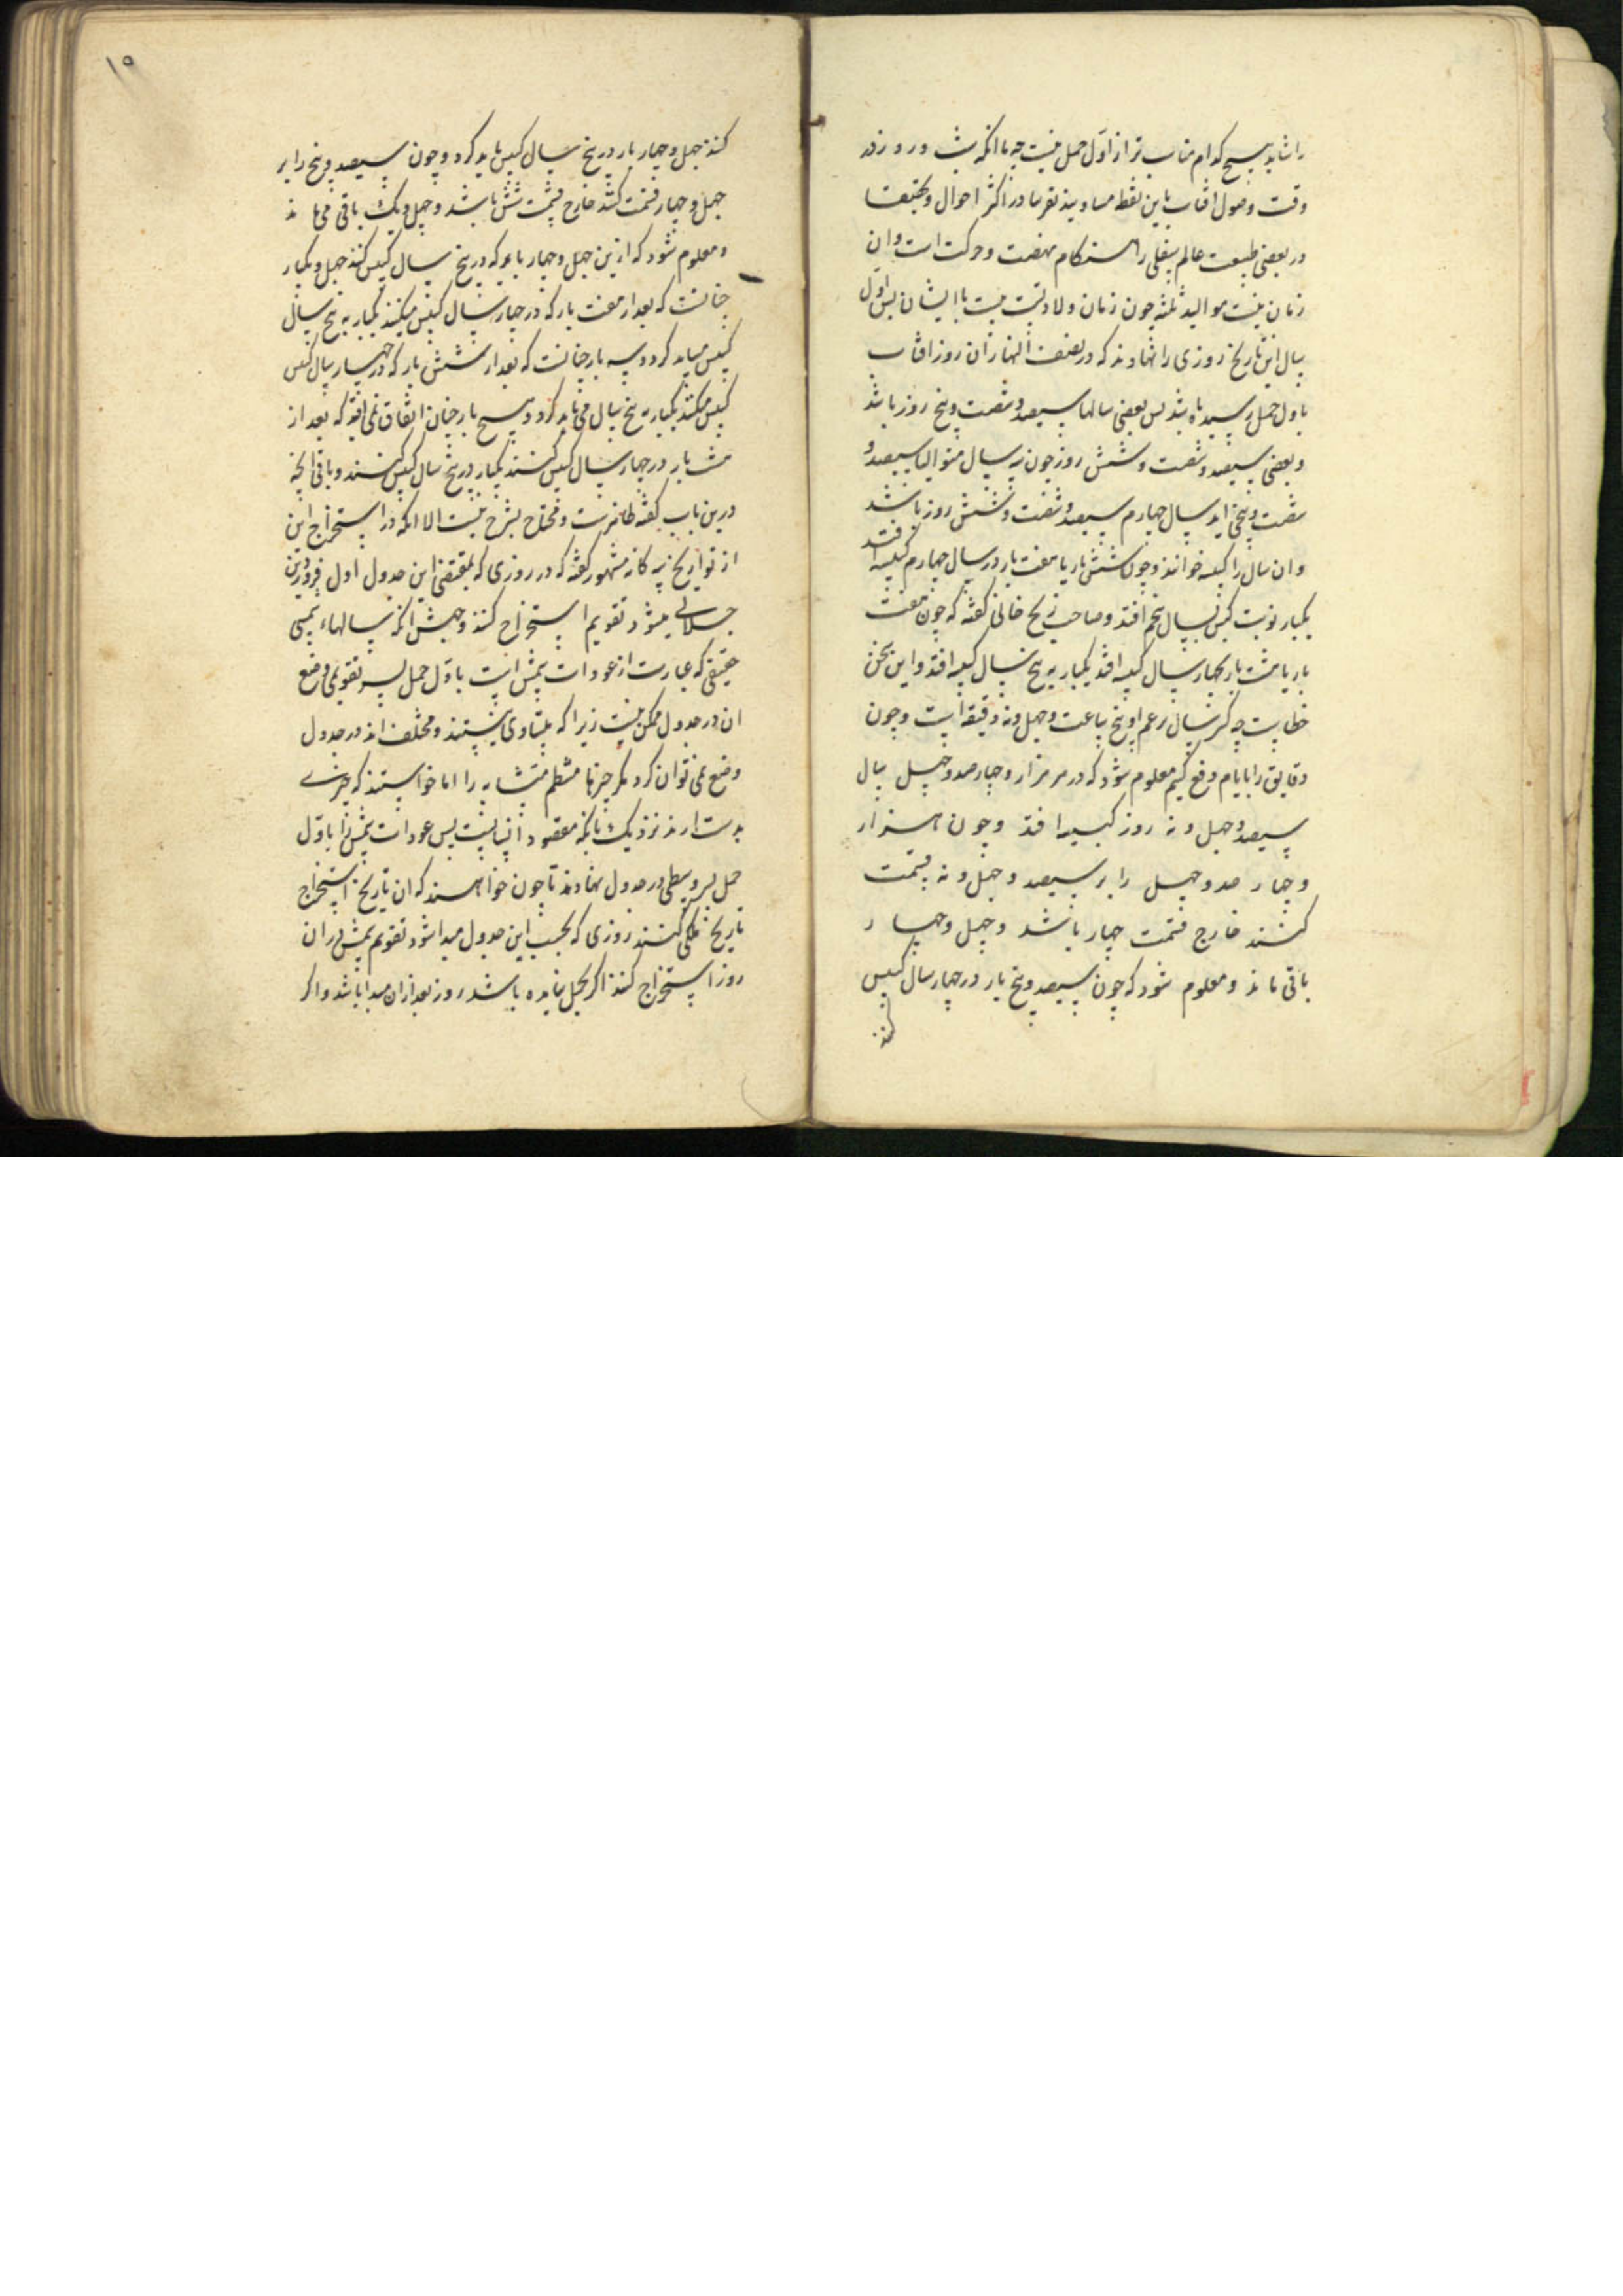 را شاید هیچ کدام مناسب تر از اول حمل نیست چه با آنکه شب و روز در
وقت وصول افتاب باین نقطه مساویند تقریبا در اکثر احوال و تحقیقا
در بعضی طبیعت عالم سفلی را هنکام نهضت و حرکت است و ان
زمان نسبت موالید ثلثه چون زمان ولادتست نسبت با ایشان پس اول
سال این تاریخ روزی را نهادند که در نصف النهار آن روز افتاب
باول حمل رسیده باشد پس بعضی سالها سیصد و شصت و پنج روز باشد
و بعضی سیصد و شصت و شش روز چون سه سال متوالیا سیصد و
شصت و پنج اید سال چهارم سیصد و شصت و شش روز باشد
و ان سال را کبیسه خوانند و چون شش بار یا هفت بار در سال چهارم کبیسه افتد
یکبار نوبت کبس بسال پنجم افتد و صاحب زیج خانی کفته که چون هفت
بار یا هشت بار بچهار سال کبیسه افتد یکبار به پنج سال کبیسه افتد و این سخن
خطاست چه کسر سال بر عم او پنج ساعت و چهل و نه دقیقه است و چون
دقایق را با ایام رفع کنیم معلوم شود که در هر هزار و چهار صد و چهل سال
سیصد و چهل و نه روز کبیسه افتد و چون هزار
و چهار صد و چهل را بر سیصد و چهل و نه قسمت
کنند خارج قسمت چهار باشد و چهل و چهار
باقی ماند و معلوم شود که چون سیصد و پنج بار در چهار سال کبس
کنند
۱۵
کنند چهل و چهار بار در پنج سال کبس باید کرد و چون سیصد و پنج را بر
چهل و چهار قسمت کنند خارج قسمت شش باشد و چهل و یک باقی می ماند
و معلوم شود که ازین چهل و چهار بار که در پنج سال کبس کنند چهل و یکبار
چنانست که بعد از هفت بار که در چهار سال کبس میکنند یکبار به پنج سال
کبس میباید کرد و سه بار چنانست که بعد از شش بار که در چهار سال کبس
کبس میکنند یکبار به پنج سال می باید کرد و هیچ بار چنان اتفاق نمی افتد که بعد از
هشت بار در چهار سال کبس کنند یکبار در پنج سال کبس کنند و باقی انچه
درین باب کفته ظاهرست و محتاج بشرح نیست الا انکه در استخراج این
از تواریخ سه کانه مشهوره کفته که در روزی که بمقتضی این جدول اول فروردین
جلالی میشود تقویم استخراج کنند وجهش انکه سالهاء شمسی
حقیقی که عبارت از عودات شمس است باول حمل بسیر تقویمی وضع
ان در جدول ممکن نیست زیرا که متساوی نیستند و مختلف اند و در جدول
وضع نمی توان کرد مکر چیزهاء منتظم متشابه را اما خواستند که چیزی
بدست ارند نزدیک بانکه مقصود انسانیست پس عودات شمس را باول
حمل بسیر وسطی در جدول نهادند تا چون خواهند که ان تاریخ استخراج
تاریخ ملکی کنند روزی که بحسب این جدول مبدا شود تقویم شمس در ان
روز استخراج کنند اکر بحمل نیامده باشد روز بعد از ان مبدا باشد و اکر